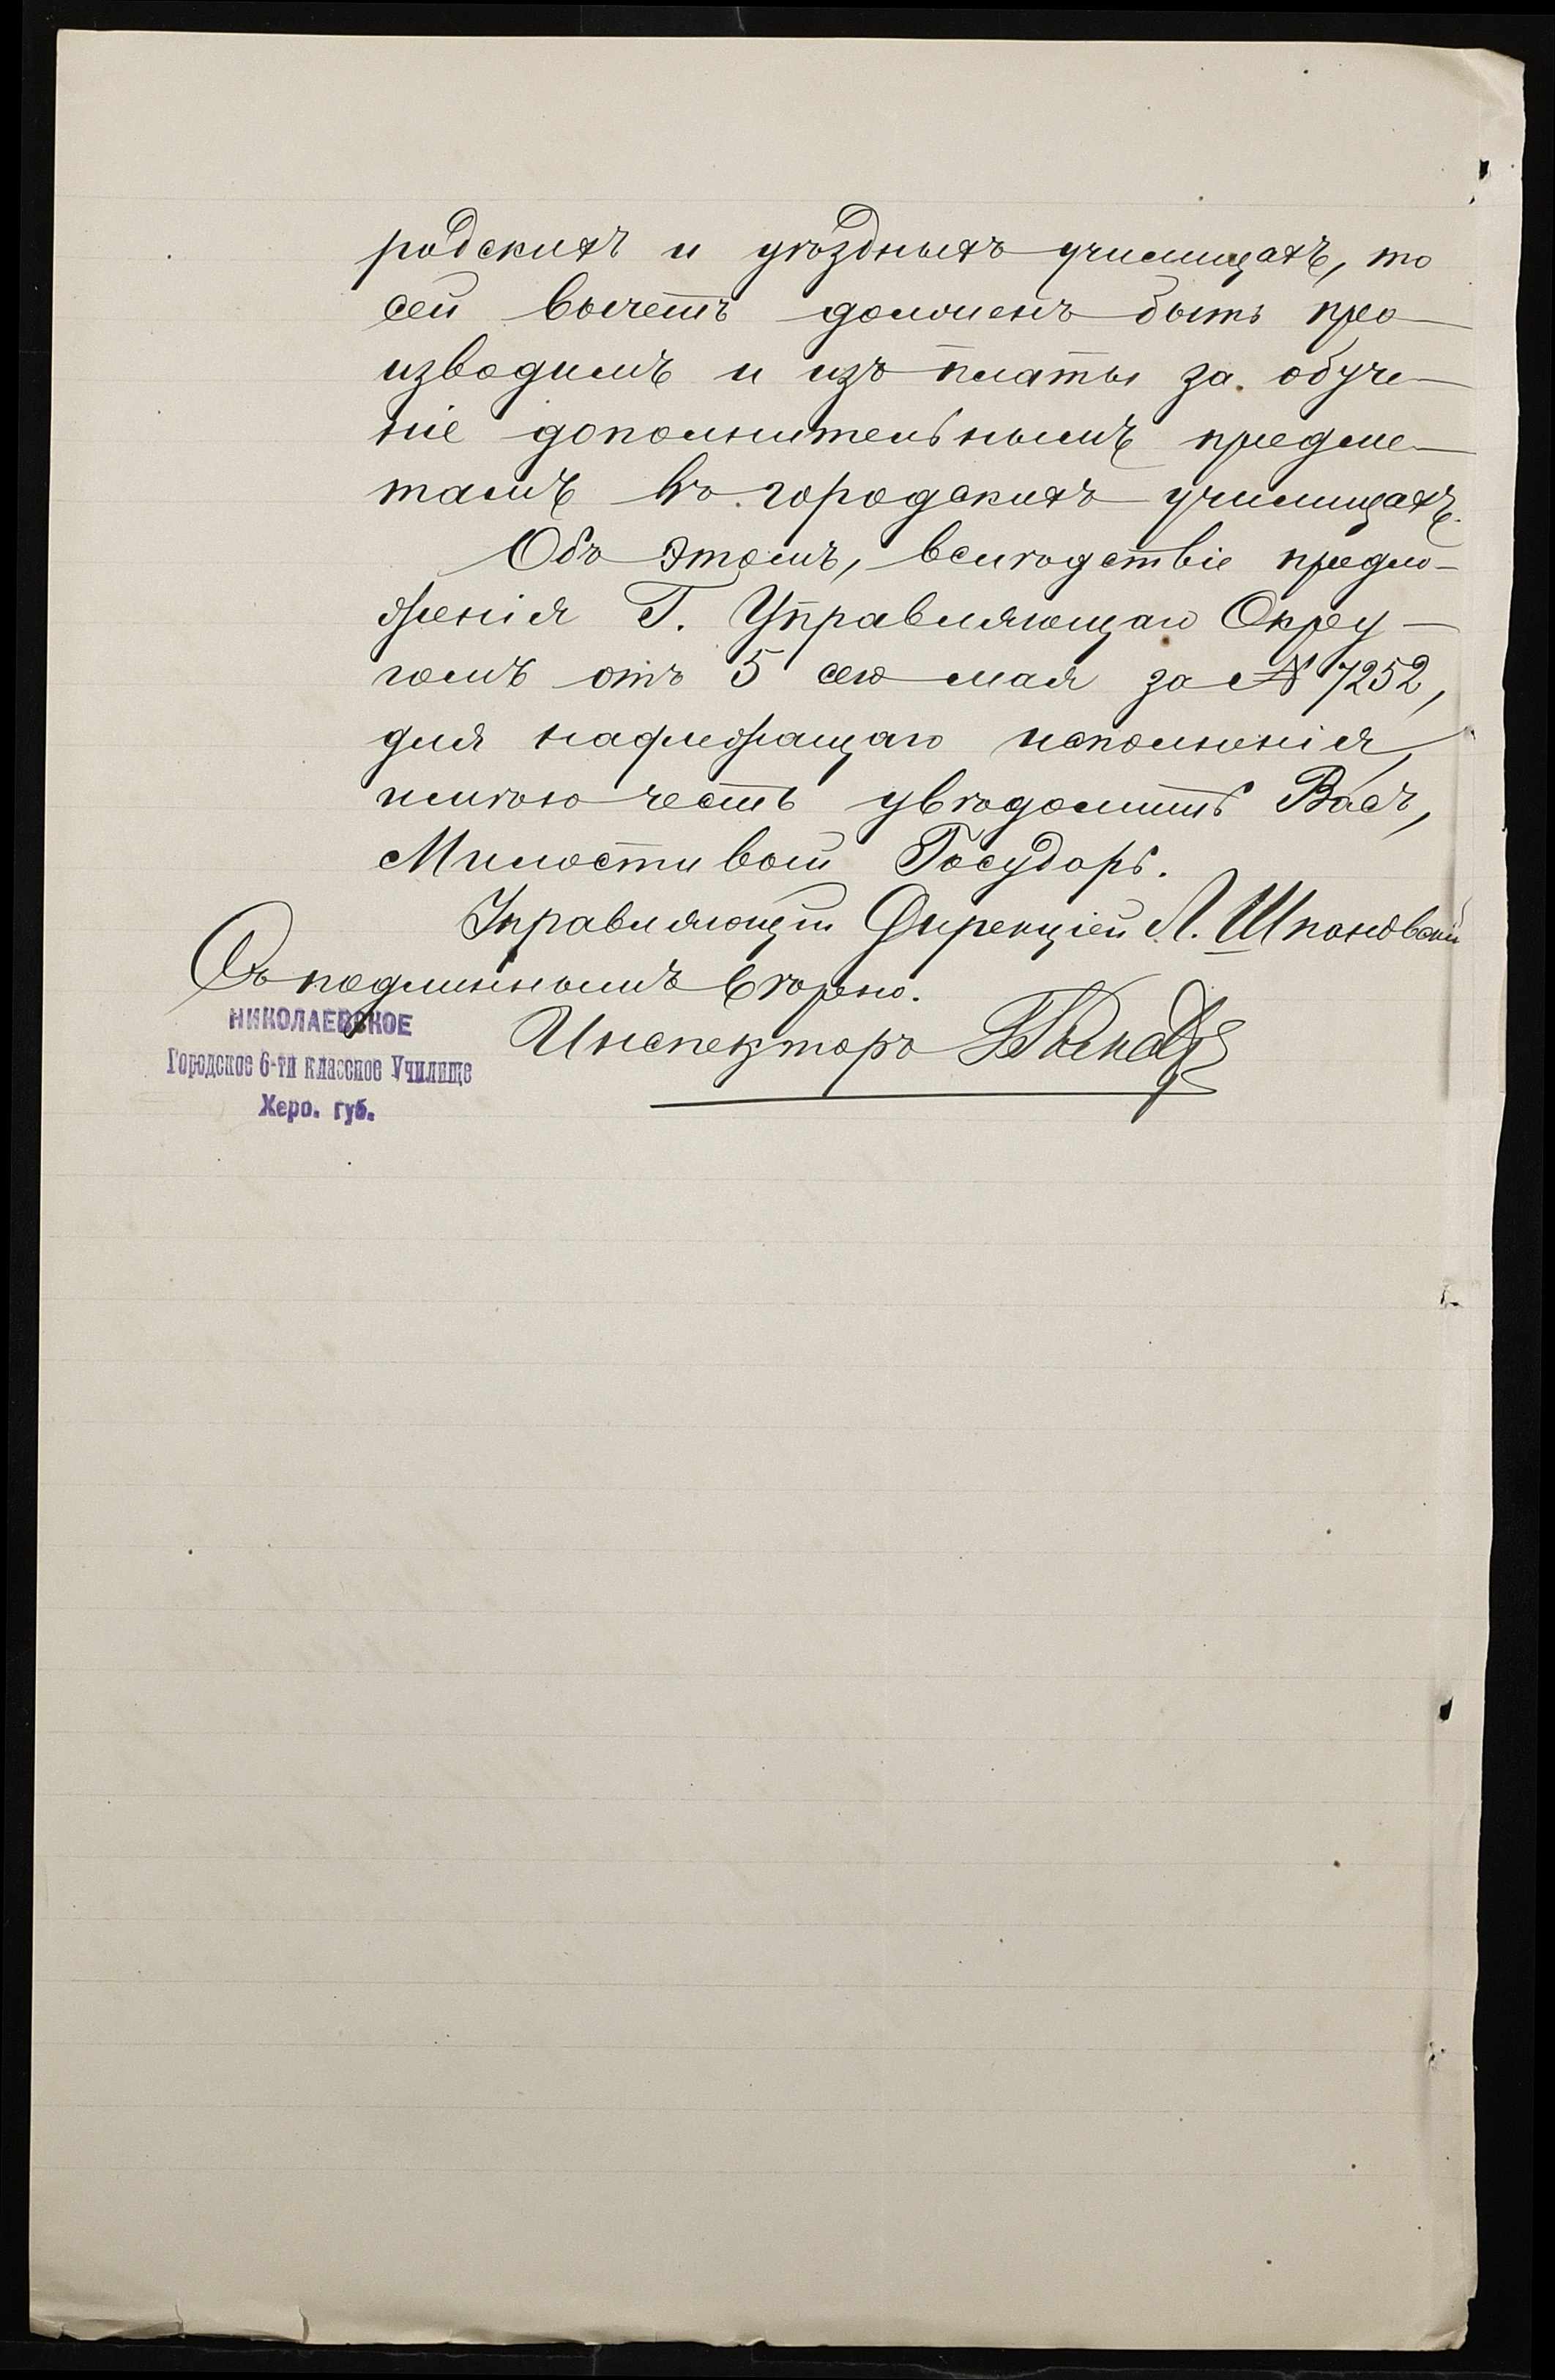 родскихъ и уѣздныхъ училищахъ, то
сей вычетъ долженъ быть про-
изводимъ и изъ платы за обуче-
ніе дополнительнымъ предме-
тамъ въ городскихъ училищахъ.
Объ этомъ, вслѣдствіе предло-
женія Г. Управляющаго Окру-
гомъ отъ 5 сего мая за № 7252,
для надлежащаго исполненія,
имѣю честь увѣдомить Васъ,
Милостивый Государь.
Управляющій Дирекціей Л. Шпановскій
Съ подлиннымъ вѣрно.
Инспекторъ
НИКОЛАЕВСКОЕ
Городское 6-ти классное Училище
Херс. губ.